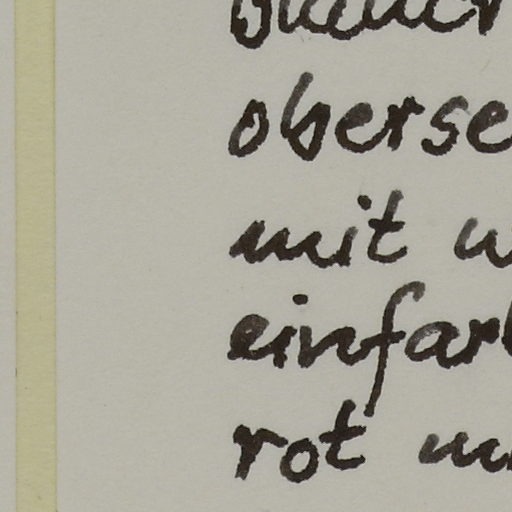 oberse
mit w
einfarb
rot